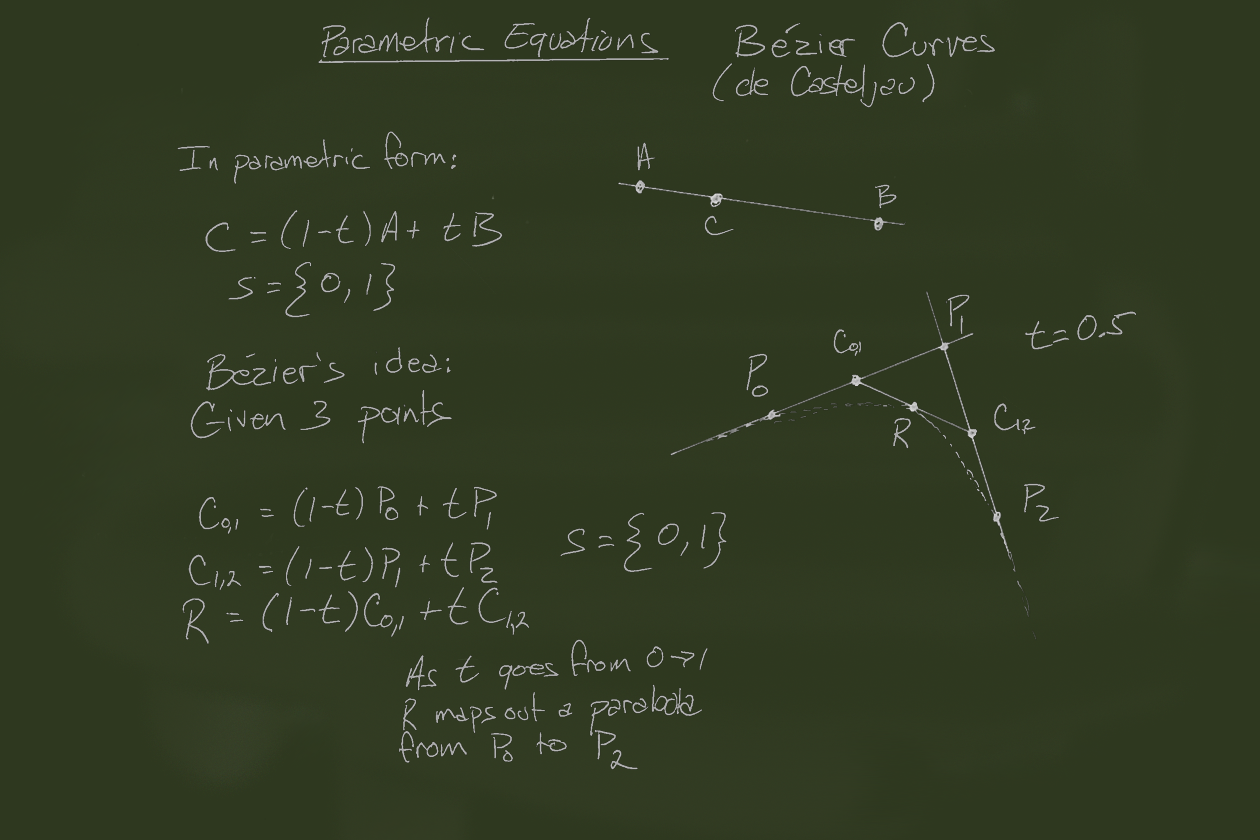 Parametric Equations Bézier Curves
(de Casteljau)
In parametric form:
C = (1-t)A + tB
s = {0, 1}
A
C
B
Bézier's idea:
Given 3 points
P₀
C₀,₁
P₁
t = 0.5
R
C₁,₂
P₂
C₀,₁ = (1-t)P₀ + tP₁
C₁,₂ = (1-t)P₁ + tP₂
R = (1-t)C₀,₁ + tC₁,₂
s = {0, 1}
As t goes from 0→1
R maps out a parabola
from P₀ to P₂